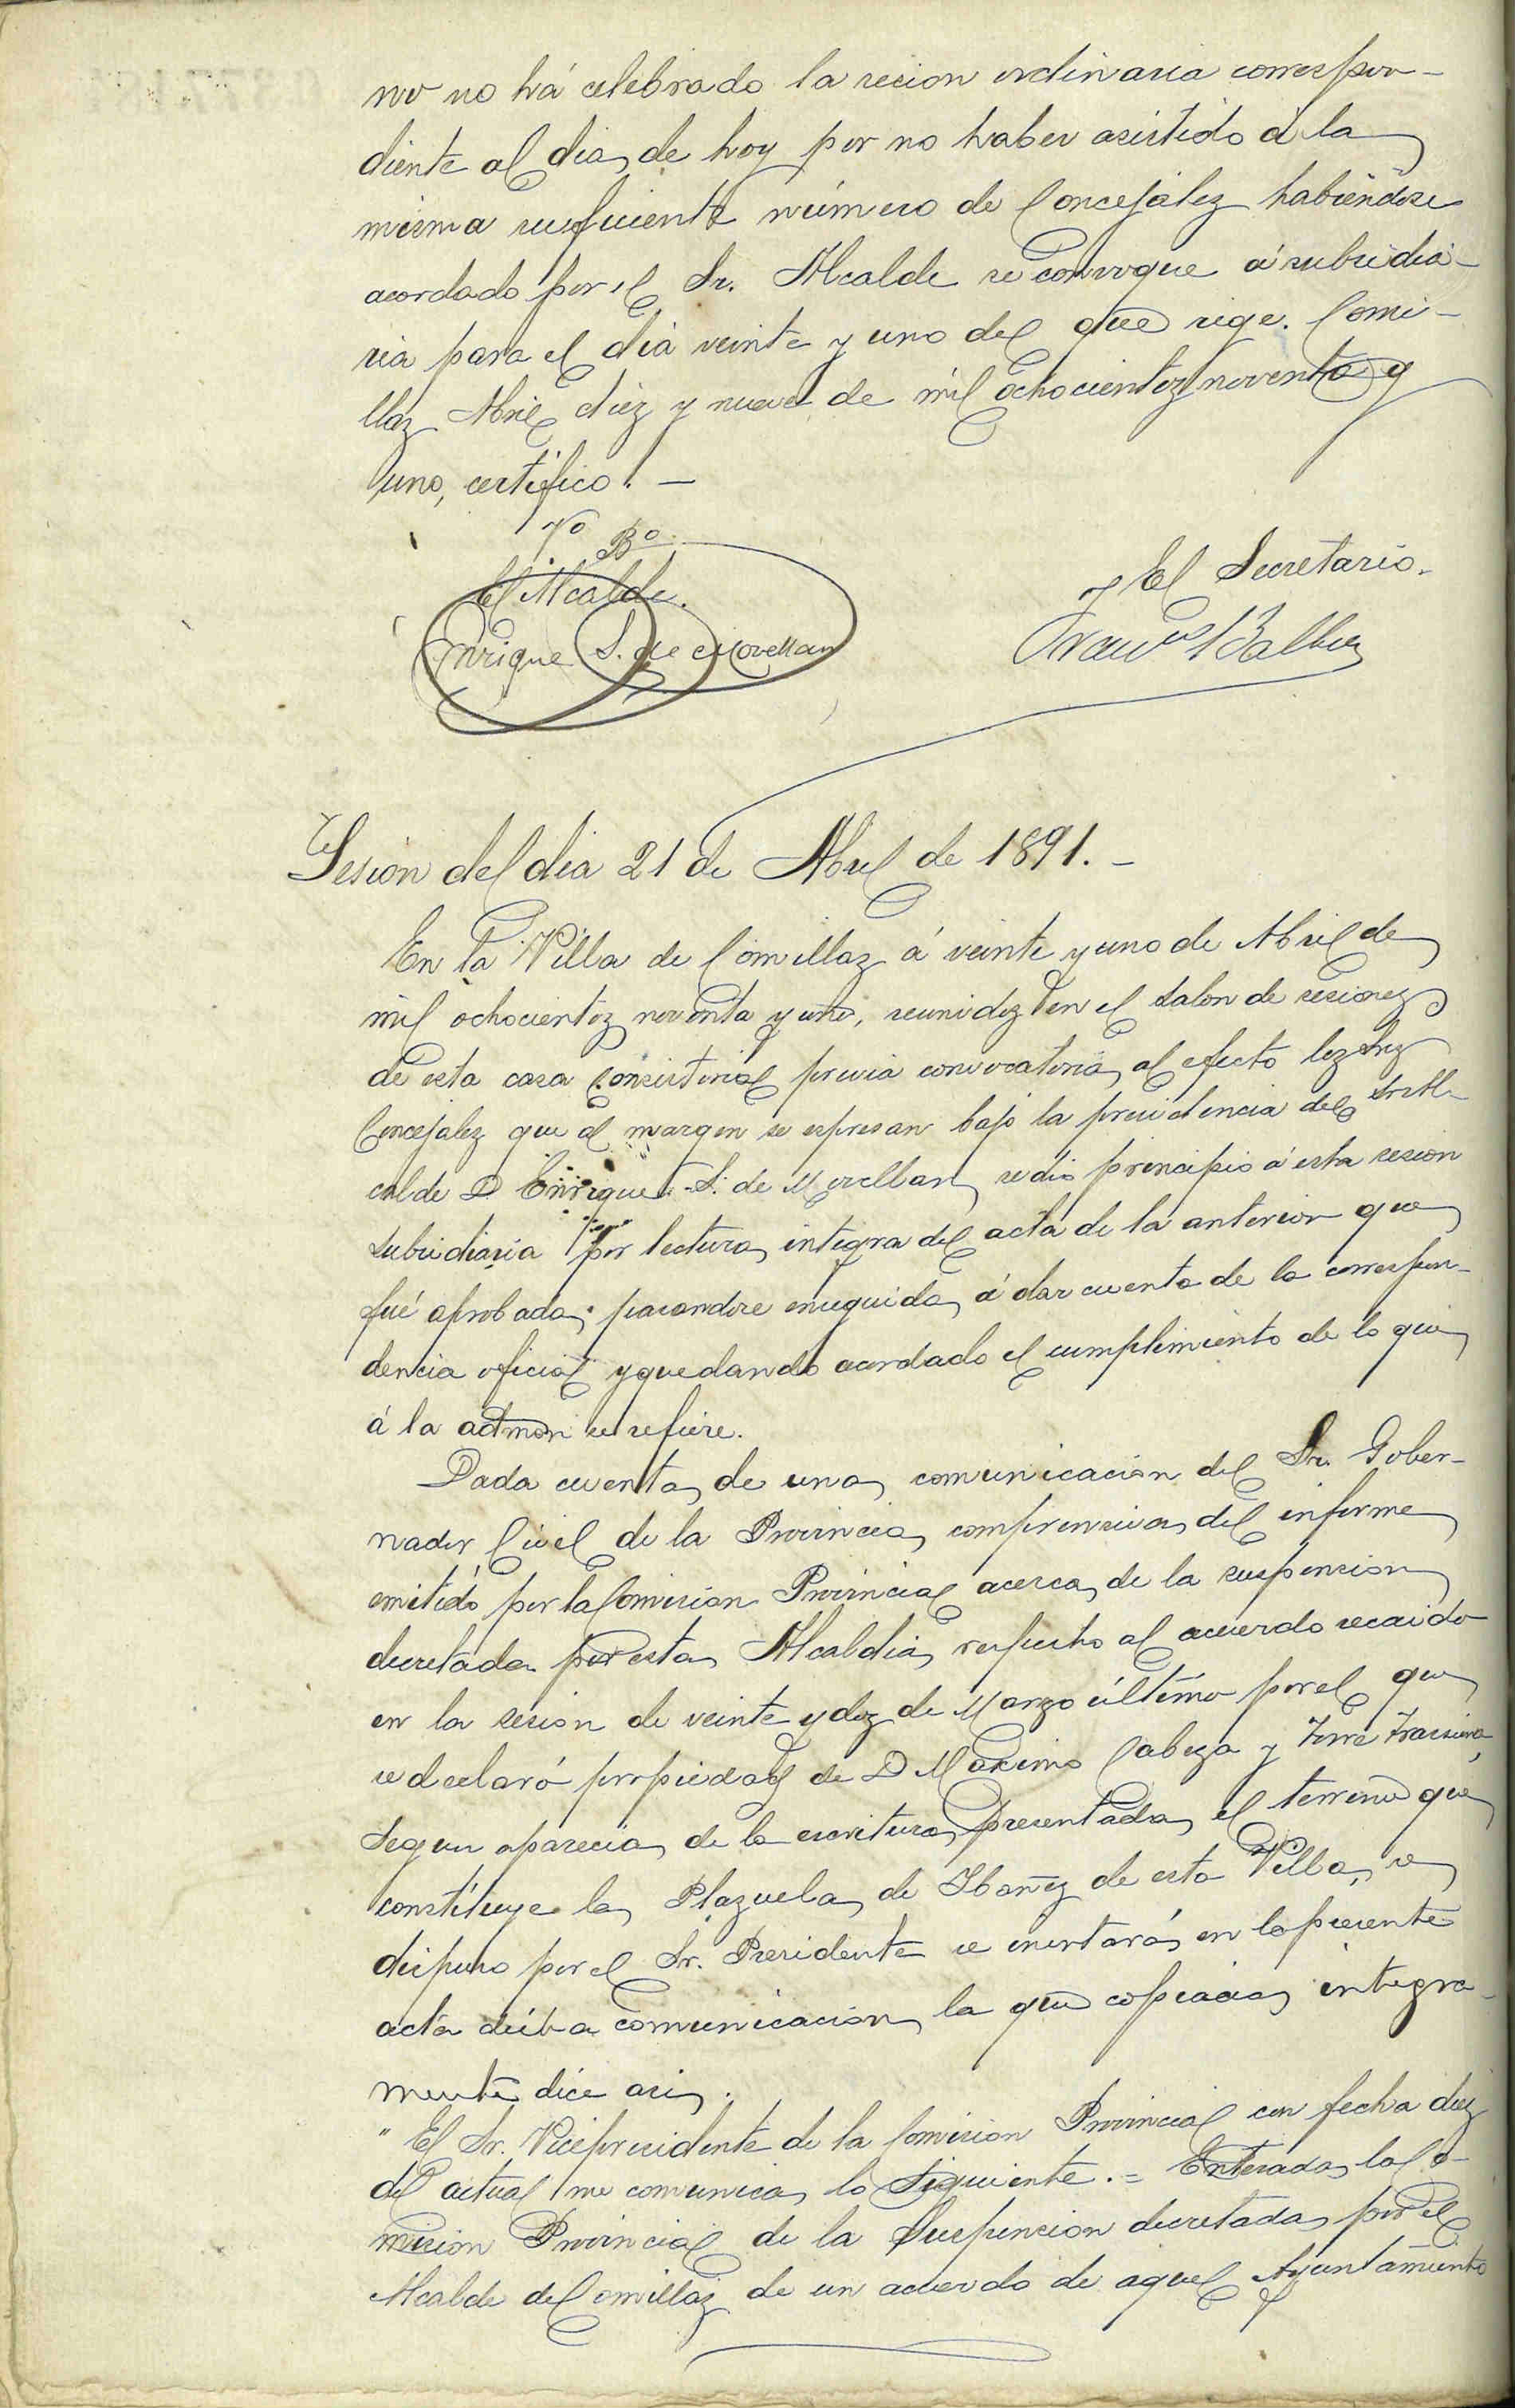 no no há celebrado la sesion ordinaria correspon-
diente al dia de hoy por no haber asistido á la
misma suficiente número de Concejales habiéndose
acordado por el Sr. Alcalde se convoque á subsidia-
ria para el dia veinte y uno del que rige. Comi-
llas Abril diez y nueve de mil ochocientos noventa y
uno, certifico. —
Vº Bº
El Alcalde.
Enrique S. de Movellan
El Secretario.
Franco Balbas
Sesion del dia 21 de Abril de 1891. —
En la Villa de Comillas á veinte y uno de Abril de
mil ochocientos noventa y uno, reunidos en el salon de sesiones
de esta casa Consistorial previa convocatoria al efecto los Sres
Concejales que al margen se espresan bajo la presidencia del Sr Al-
calde D Enrique S. de Movellan, se dio principio á esta sesion
subsidiaria por lectura integra del acta de la anterior que
fué aprobada; pasandose enseguida á dar cuenta de la correspon-
dencia oficial y quedando acordado el cumplimiento de lo que
á la admon se refiere.
Dada cuenta de una comunicacion del Sr. Gober-
nador Civil de la Provincia comprensiva del informe
emitido por la Comision Provincial acerca de la suspension
decretada por esta Alcaldia respecto al acuerdo recaido
en la sesion de veinte y dos de Marzo último por el que
se declaró propiedad de D Maximo Cabeza y Torre Trassierra,
segun aparecia de la escritura presentada el terreno que
constituye la Plazuela de Ibañez de esta Villa, se
dispuso por el Sr. Presidente se insertará en la presente
acta dicha comunicacion la que copiada integra-
mente dice asi.
" El Sr. Vicepresidente de la Comision Provincial con fecha diez
del actual me comunica lo siguiente. = Enterada la Co-
mision Provincial de la Suspension decretada por el
Alcalde de Comillas de un acuerdo de aquel Ayuntamiento